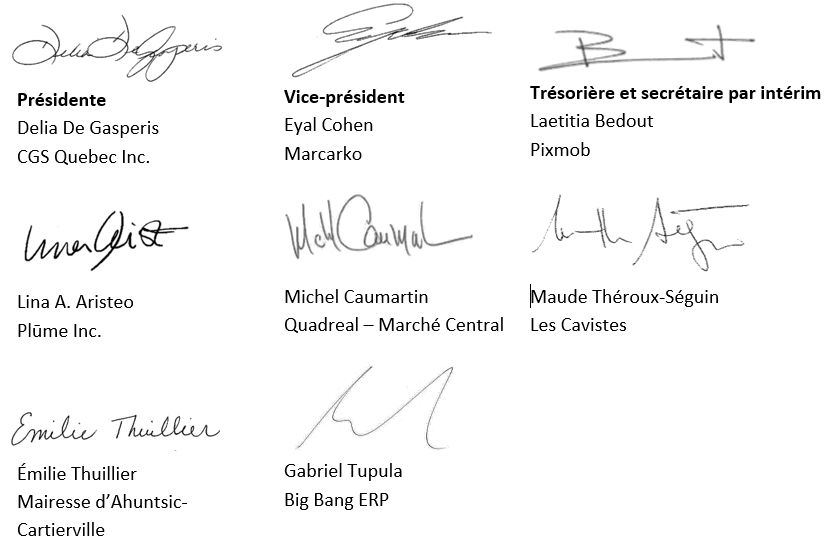 Delia De Gasperis
Présidente
Delia De Gasperis
CGS Quebec Inc.
Vice-président
Eyal Cohen
Marcarko
Trésorière et secrétaire par intérim
Laetitia Bedout
Pixmob
Lina A. Aristeo
Plūme Inc.
Michel Caumartin
Quadreal – Marché Central
Maude Théroux-Séguin
Les Cavistes
Emilie Thuillier
Émilie Thuillier
Mairesse d’Ahuntsic-
Cartierville
Gabriel Tupula
Big Bang ERP